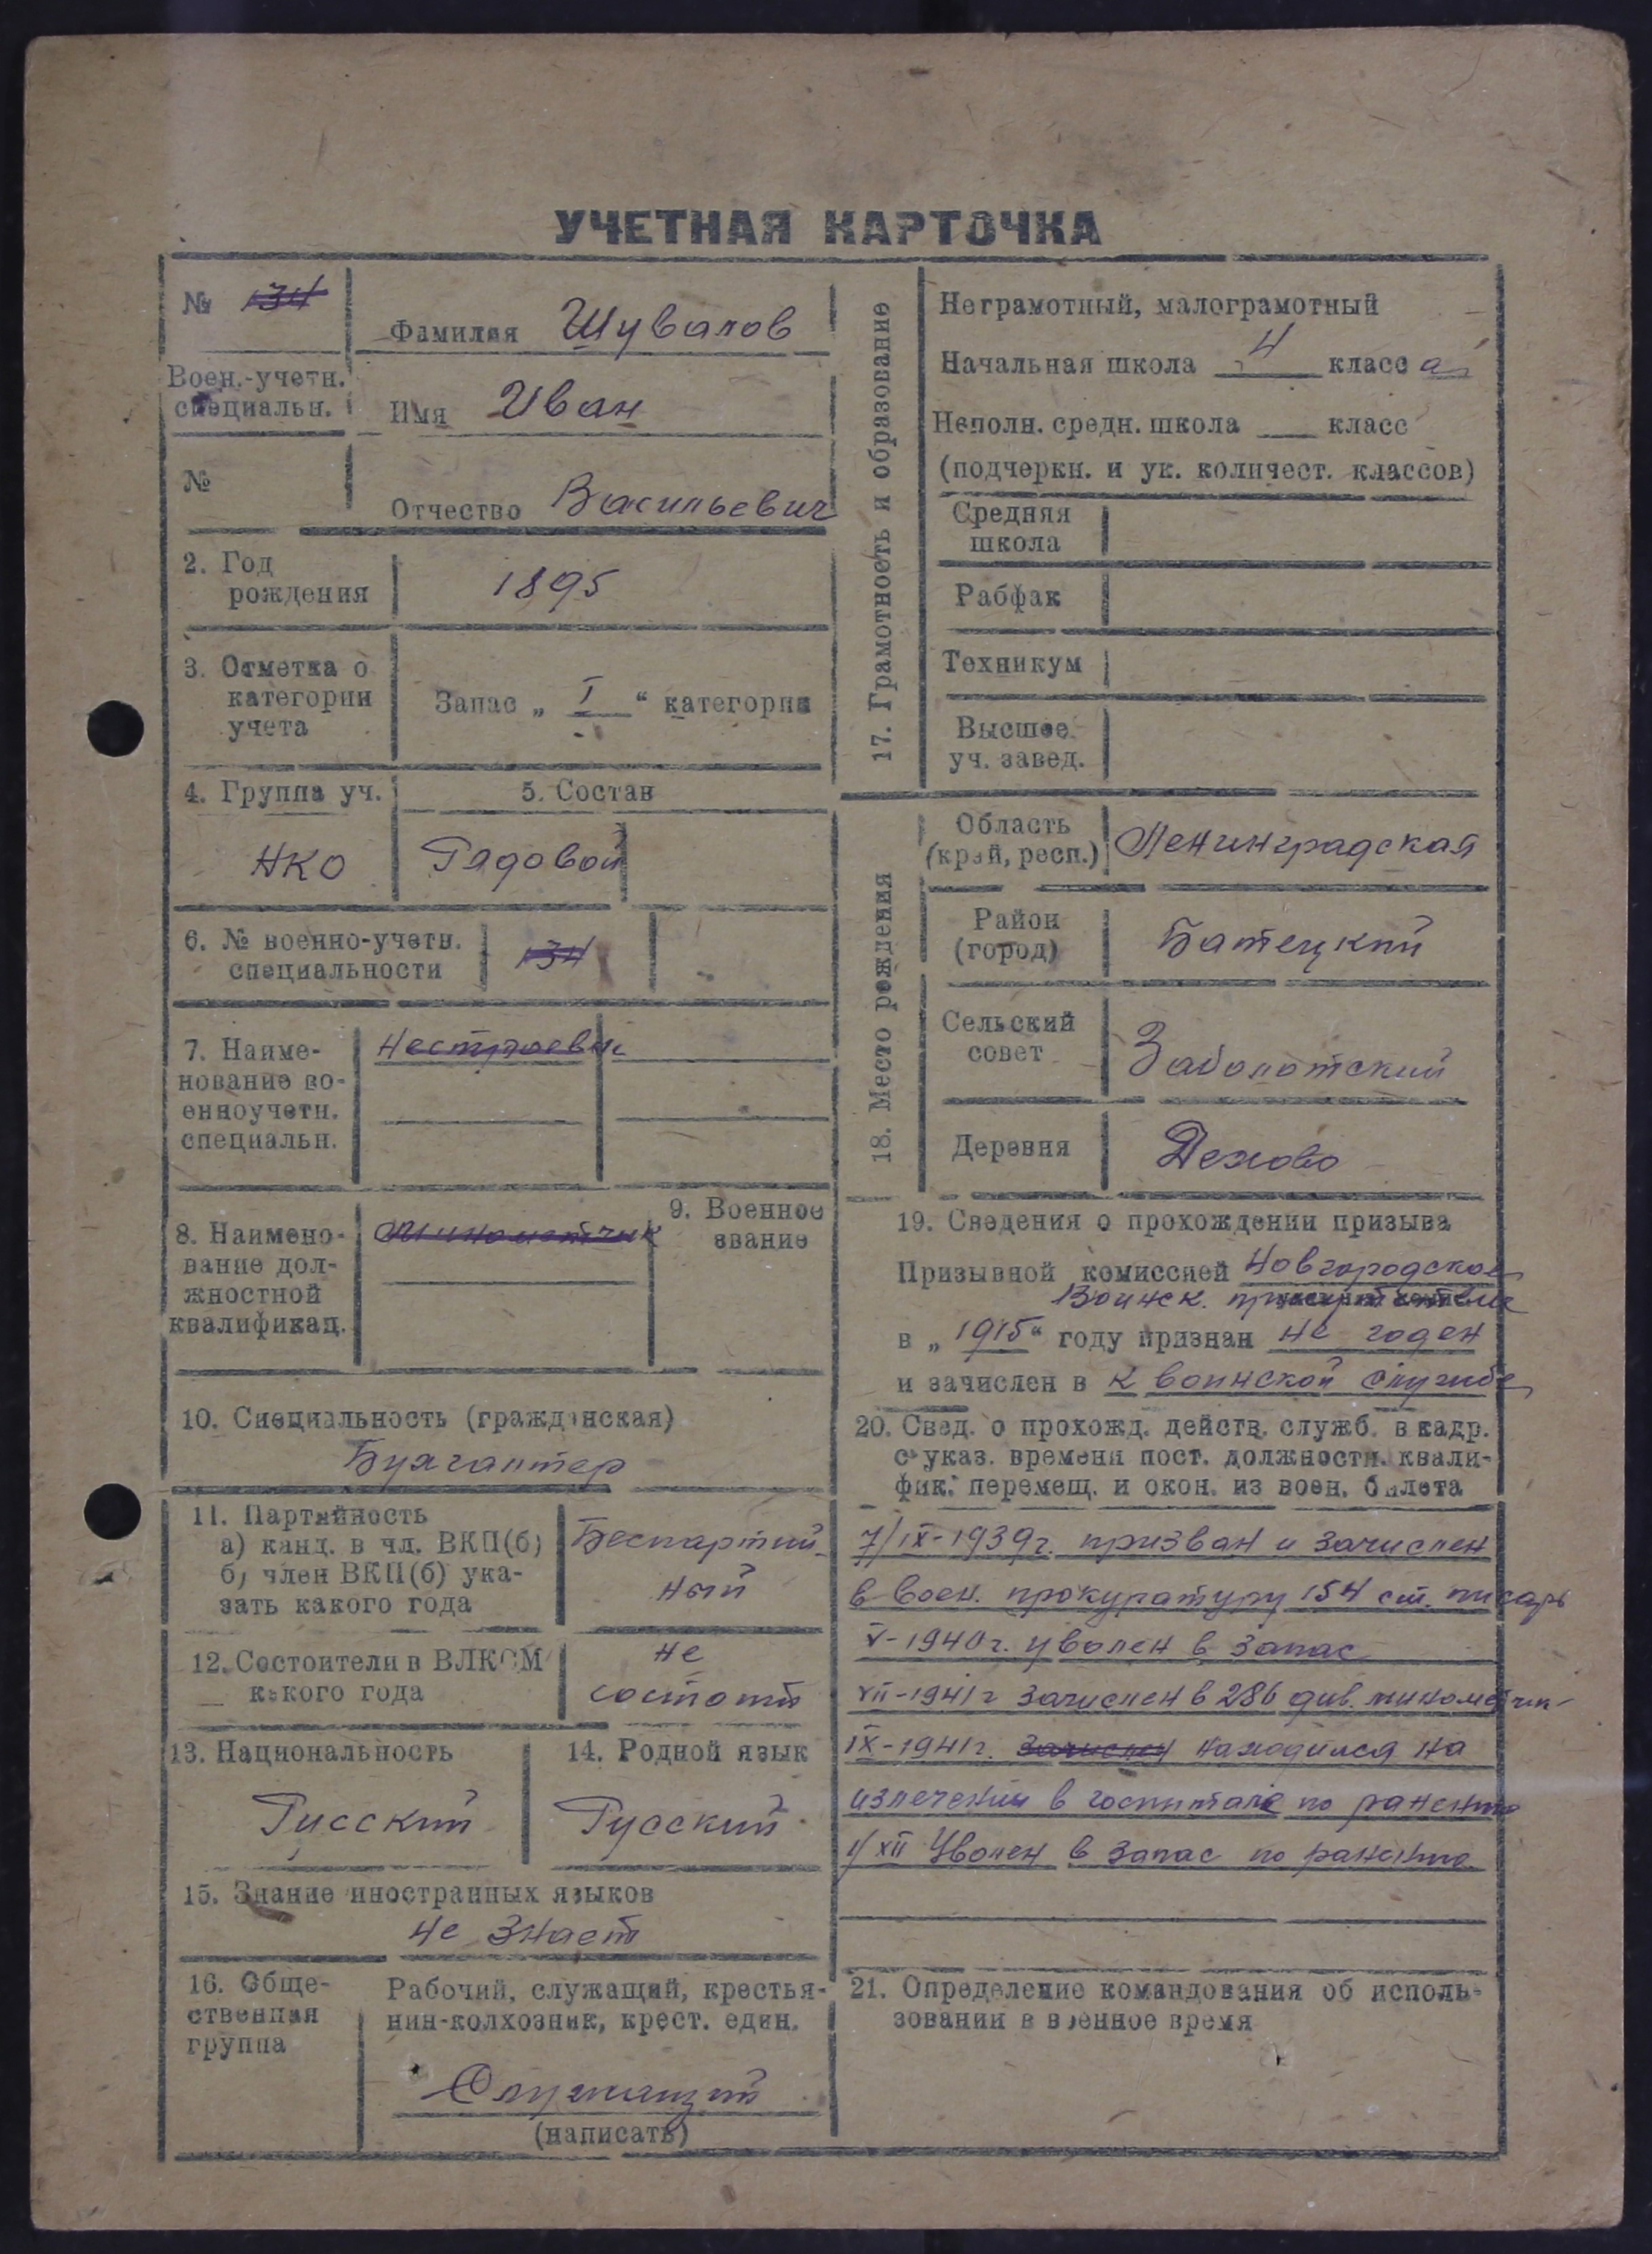 УЧЕТНАЯ КАРТОЧКА
№ 134
Фамилия Шувалов
Воен.-учетн.
специальн.
Имя Иван
№
Отчество Васильевич
2. Год
рождения
1895
3. Отметка о
категории
учета
Запас „ I “ категории
4. Группа уч.
5. Состав
НКО
Рядовой
6. № военно-учетн.
специальности
134
7. Наиме-
нование во-
енноучетн.
специальн.
Нестроевик
8. Наимено-
вание дол-
жностной
квалификац.
Минометчик
9. Военное
звание
10. Специальность (гражданская)
Бухгалтер
11. Партийность
а) канд. в чл. ВКП(б)
б) член ВКП(б) ука-
зать какого года
Беспартий-
ный
12. Состоители в ВЛКСМ
какого года
не
состоит
13. Национальность
Русский
14. Родной язык
Русский
15. Знание иностранных языков
не знает
16. Обще-
ственная
группа
Рабочий, служащий, крестья-
нин-колхозник, крест. един.
Служащий
(написать)
17. Грамотность и образование
Неграмотный, малограмотный
Начальная школа 4 класс а
Неполн. средн. школа ___ класс
(подчеркн. и ук. количест. классов)
Средняя
школа
Рабфак
Техникум
Высшее
уч. завед.
18. Место рождения
Область
(край, респ.)
Ленинградская
Район
(город)
Батецкий
Сельский
совет
Заболотский
Деревня
Дехово
19. Сведения о прохождении призыва
Призывной комиссией Новгородское
Воинск. присутствие
в „ 1915 “ году признан не годен
и зачислен в к воинской службе
20. Свед. о прохожд. действ. служб. в кадр.
с указ. времени пост. должностн. квали-
фик. перемещ. и окон. из воен. билета
7/IX-1939г. призван и зачислен
в воен. прокуратуру 154 ст. писарь
V-1940г. уволен в запас
VII-1941г зачислен в 286 див. минометчик
IX-1941г. зачислен находился на
излечении в госпитале по ранению
1/XII Уволен в запас по ранению
21. Определение командования об исполь-
зовании в военное время